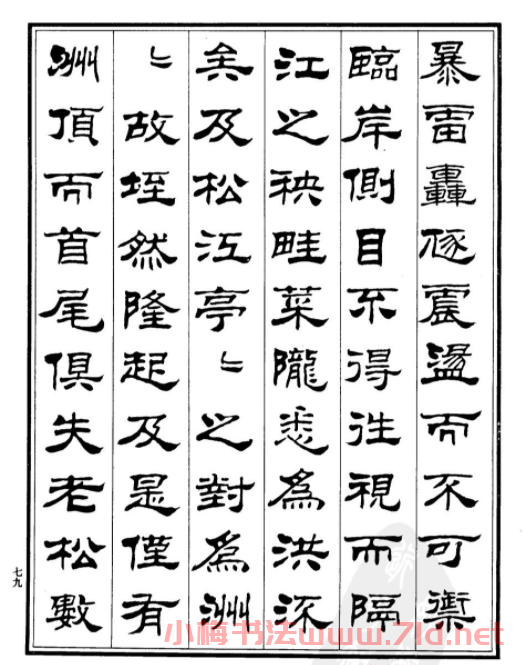 暴雷轟豗震盪而不可禦
臨岸側目不得注視而隔
江之秧畦菜隴悉爲洪流
矣及松江亭〻之對爲洲
〻故垤然隆起及是僅有
洲頂而首尾俱失老松數
七九
小梅书法www.7ld.net